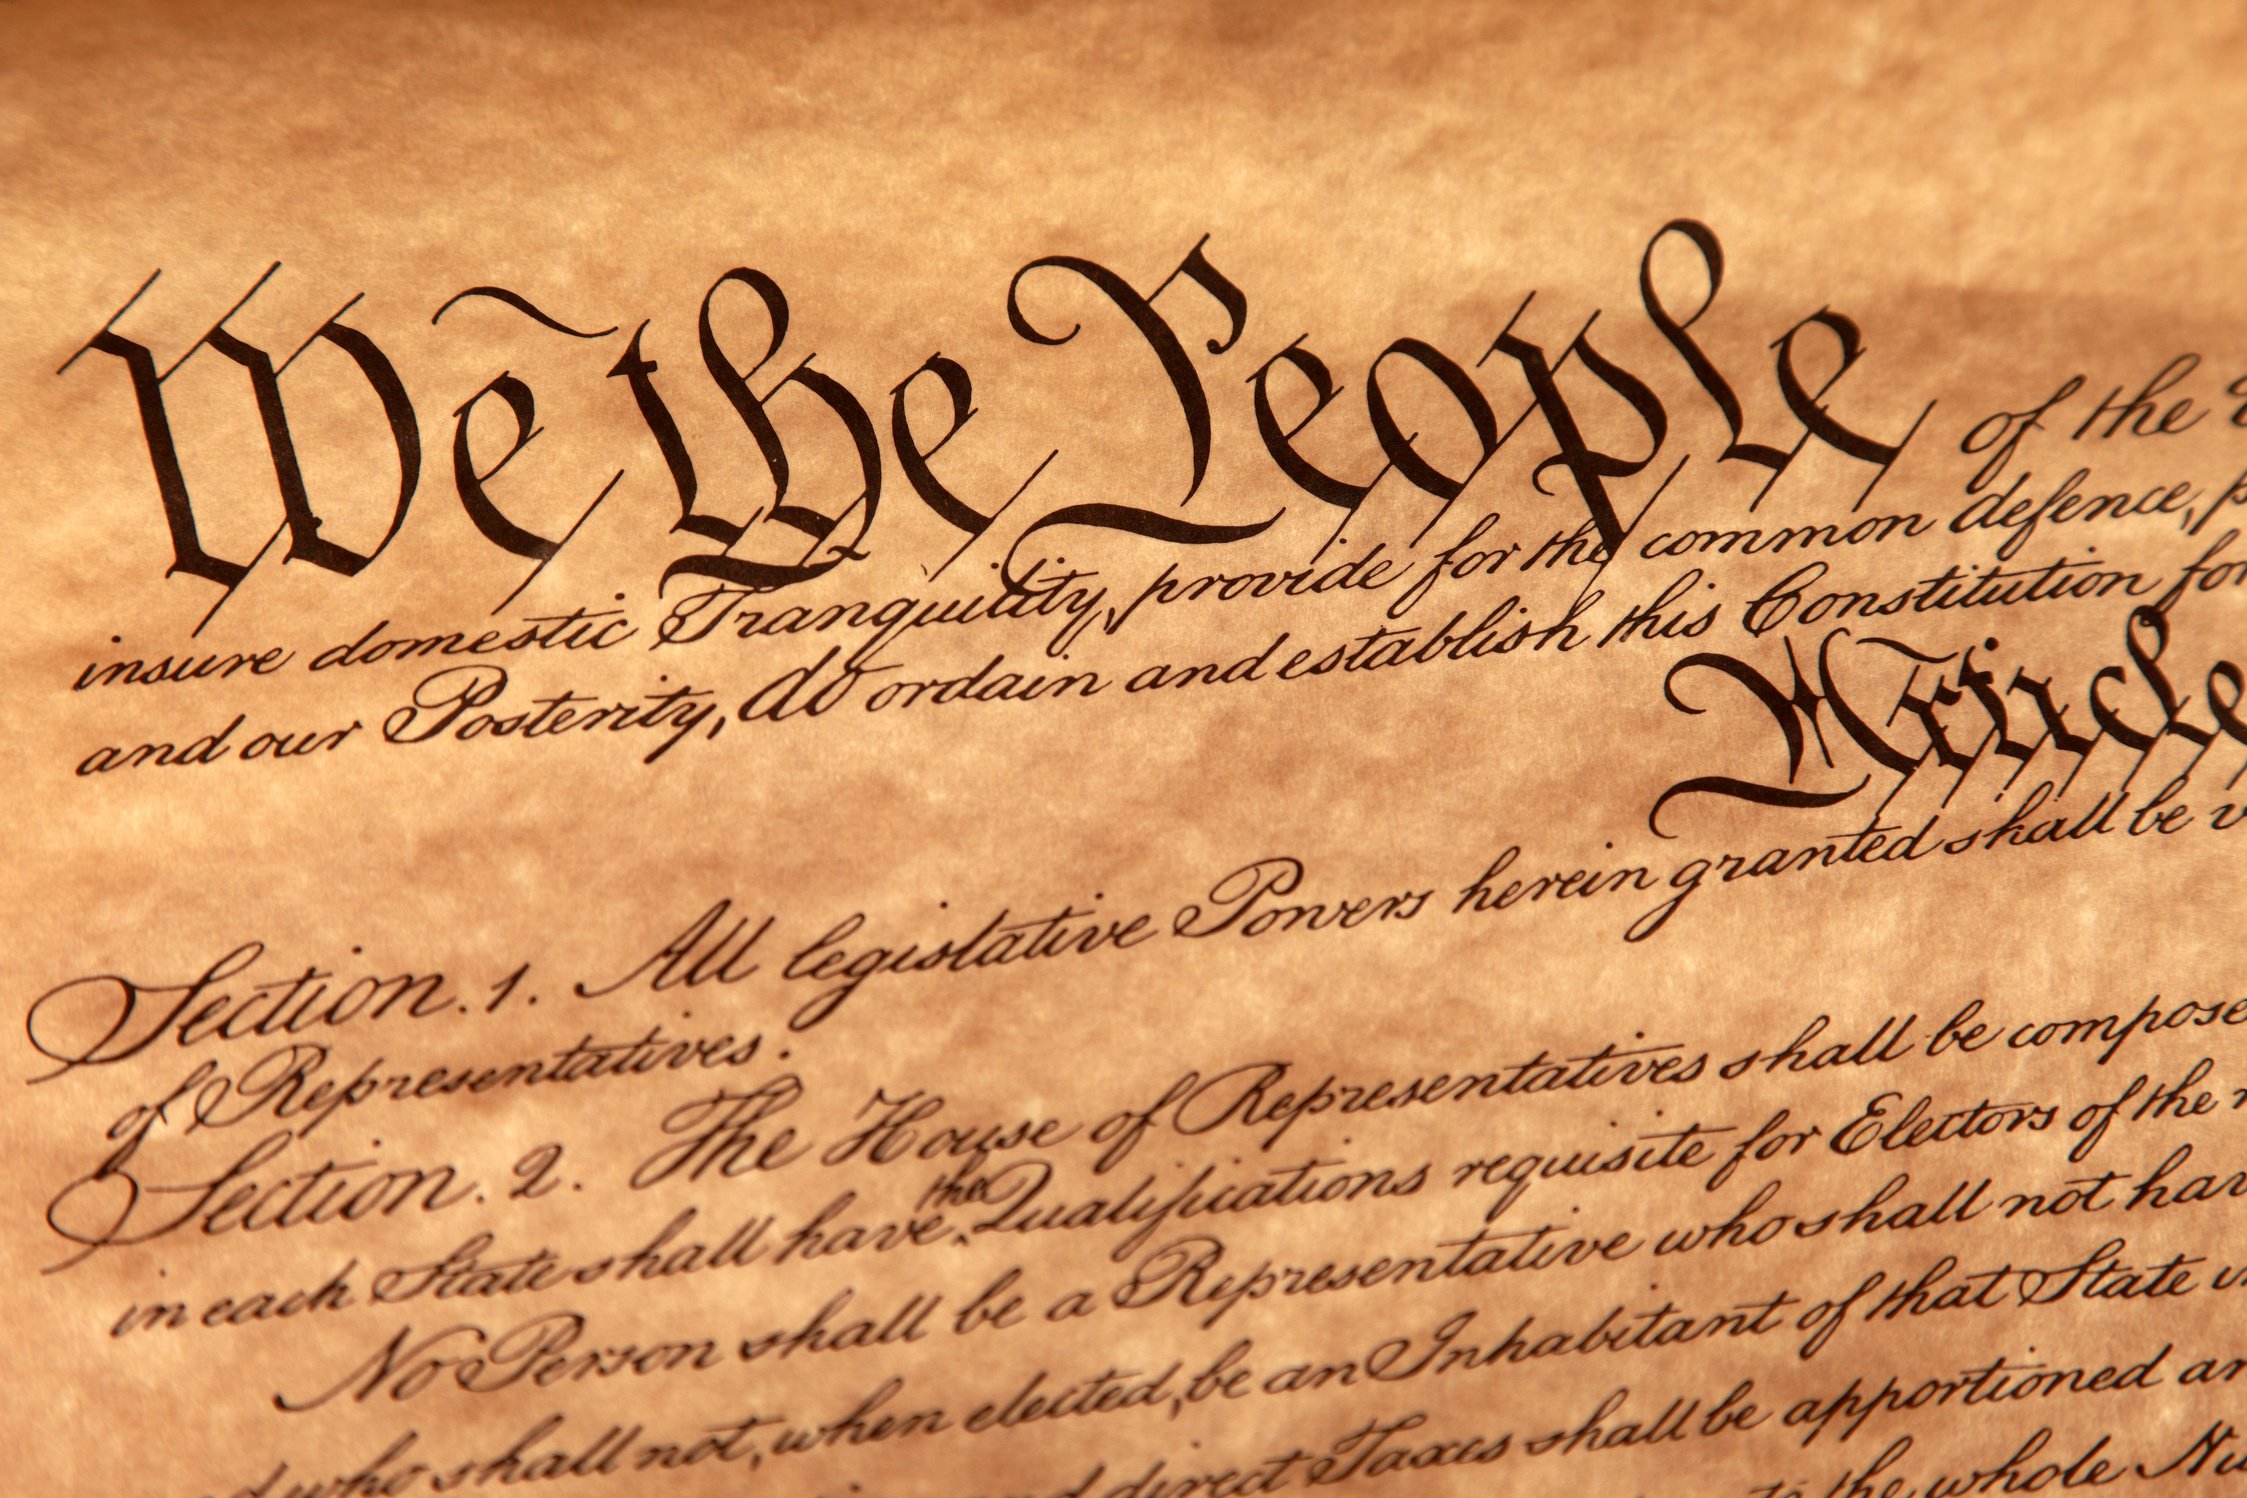 We the People of the
insure domestic Tranquility, provide for the common defence,
and our Posterity, do ordain and establish this Constitution for
Article
Section. 1. All legislative Powers herein granted shall be
of Representatives.
Section. 2. The House of Representatives shall be compose
in each State shall have the Qualifications requisite for Electors of the
No Person shall be a Representative who shall not hav
who shall not, when elected, be an Inhabitant of that State
direct Taxes shall be apportioned
the whole Nu